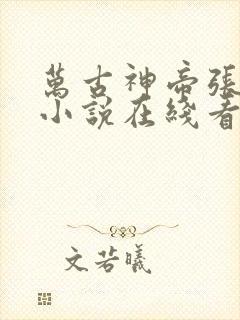 萬古神帝張
小說在綫看
文若曦